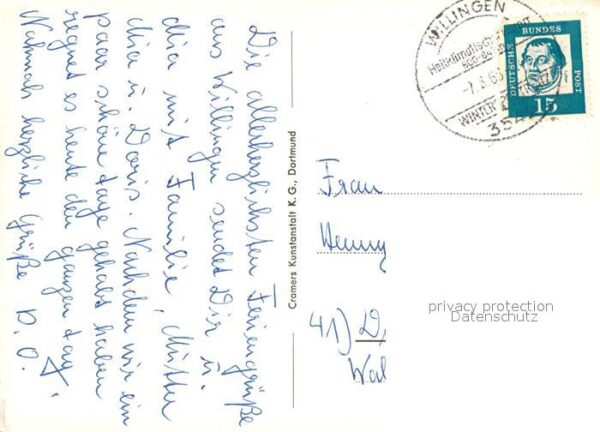 Die allerherzlichsten Feriengrüße
aus Willingen sendet Dir u.
mit Familie, Mutter
u. Doris. Nachdem wir ein
paar schöne Tage gehabt haben
regnet es heute den ganzen Tag.
Nochmals herzliche Grüße D. O.
Cramers Kunstanstalt K. G., Dortmund
WILLINGEN
Heilklimatischer
354
DEUTSCHE BUNDESPOST
15
Frau
Henny
41) D
Wal
privacy protection
Datenschutz